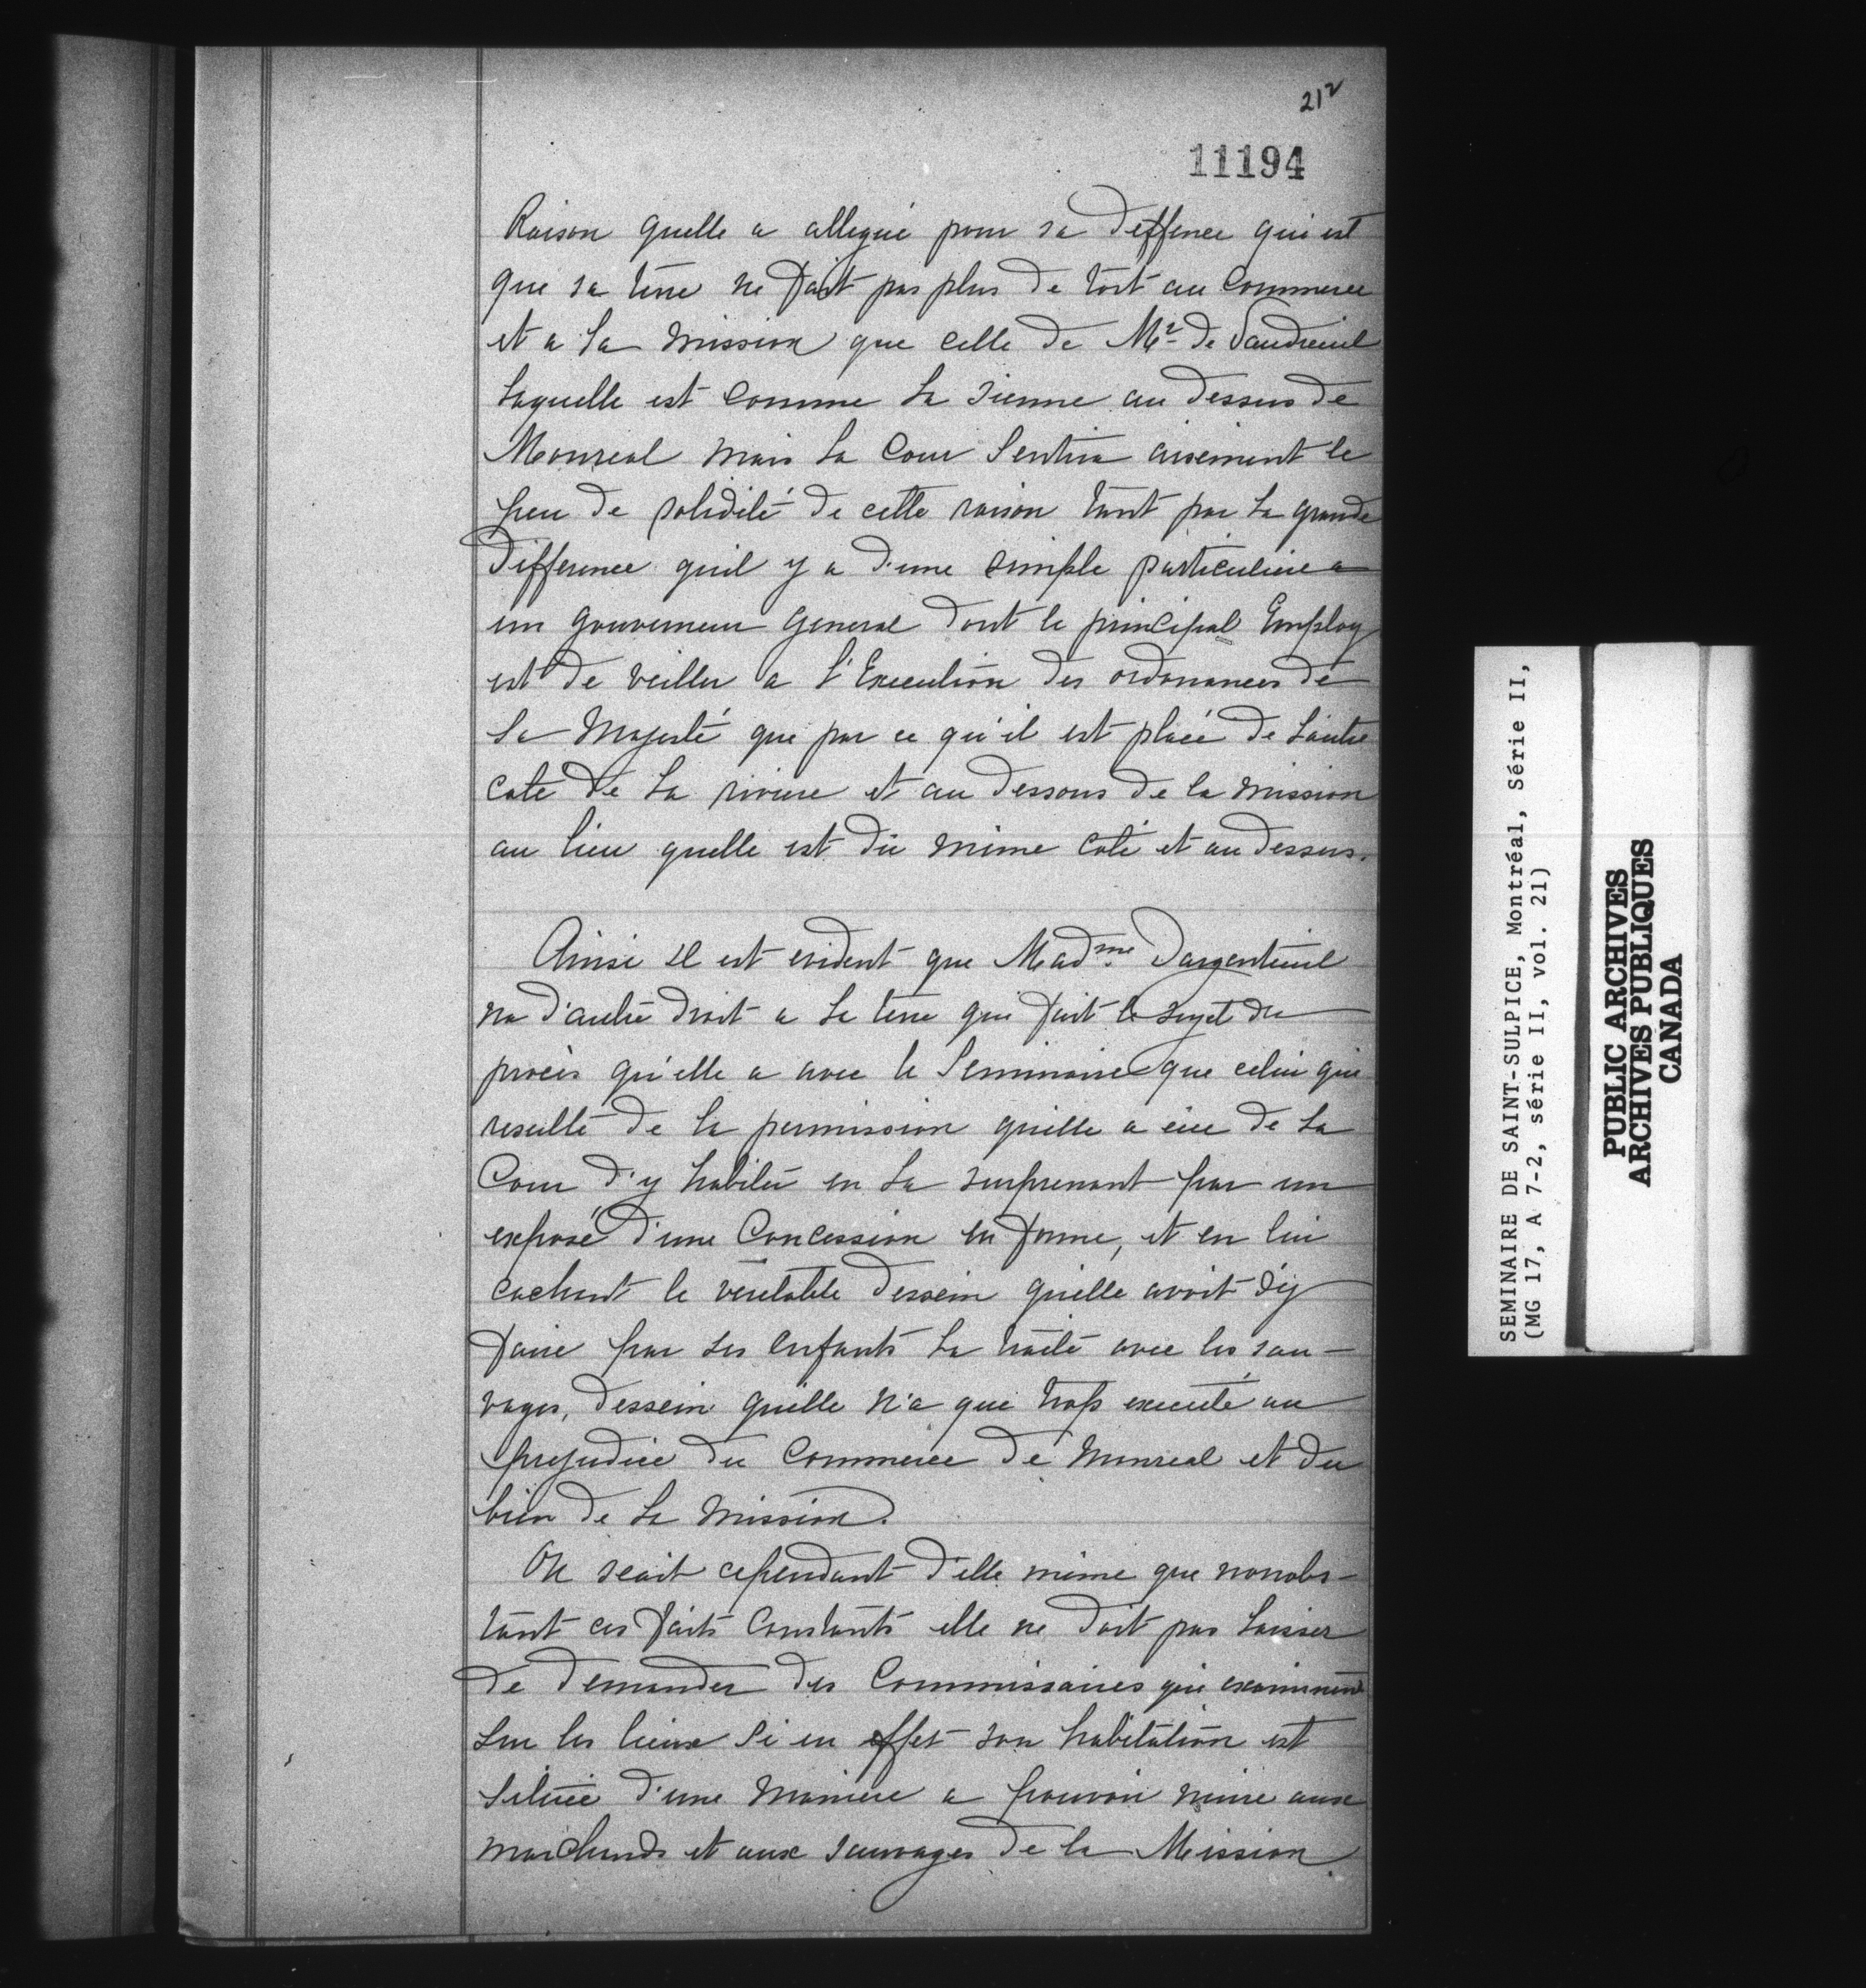 212
11194
Raison quelle a allegué pour sa deffence qui est
que sa terre ne fait pas plus de tort au Commerce
et a la mission que celle de Mr de Vaudreuil
laquelle est comme la sienne au dessus de
Monreal mais la Cour sentira aisement le
peu de solidité de cette raison tant par la grande
difference quil y a d'une simple particuliere a
un gouverneur general dont le principal Employ
est de veiller a l'Execution des ordonnances de
Sa Majesté que par ce qu'il est placé de l'autre
coté de la riviere et au dessous de la mission
au lieu quelle est du même coté et au dessus.
Ainsi il est evident que Madme Dargenteuil
na d'autre droit a la terre qui fait le sujet du
procès qu'elle a avec le Seminaire que celui qui
resulte de la permission quelle a eue de la
Cour d'y habiter en la surprenant par un
exposé d'une Concession en forme, et en lui
cachant le veritable dessein quelle avoit d'y
faire par ses enfants la traite avec les sau-
vages, dessein quelle n'a que trop executé au
prejudice du Commerce de Monreal et du
bien de la Mission.
On scait cependant d'elle même que nonobs-
tant ces faits constants elle ne doit pas laisser
de demander des Commissaires qui examinent
sur les lieux si en effet son habitation est
située d'une maniere a pouvoir nuire aux
marchands et aux sauvages de la Mission.
SEMINAIRE DE SAINT-SULPICE, Montréal, Série II,
(MG 17, A 7-2, série II, vol. 21)
PUBLIC ARCHIVES
ARCHIVES PUBLIQUES
CANADA